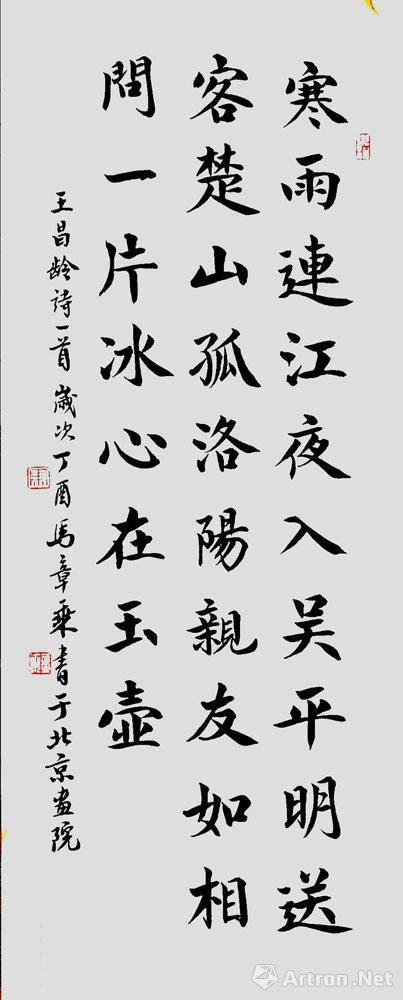 寒雨連江夜入吴平明送
客楚山孤洛陽親友如相
問一片冰心在玉壺
王昌龄詩一首歲次丁酉馬章乘書于北京畫院
Artron.Net